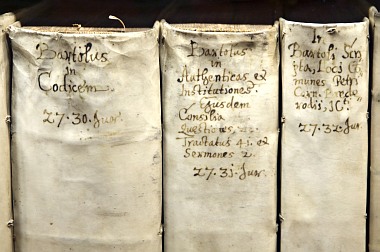 Bartolus
in
Codicem.
27.30. Jur.
Bartolus
in
Authenticas et
Institutiones.
Ejusdem
Consilia
Quæstiones
Tractatus 41. et
Sermones 2.
27.31. Jur.
In
Bartoli Scri
pta, Loci Co
munes Petri
Corn. Brede
rodij, IC.
27.32. Jur.